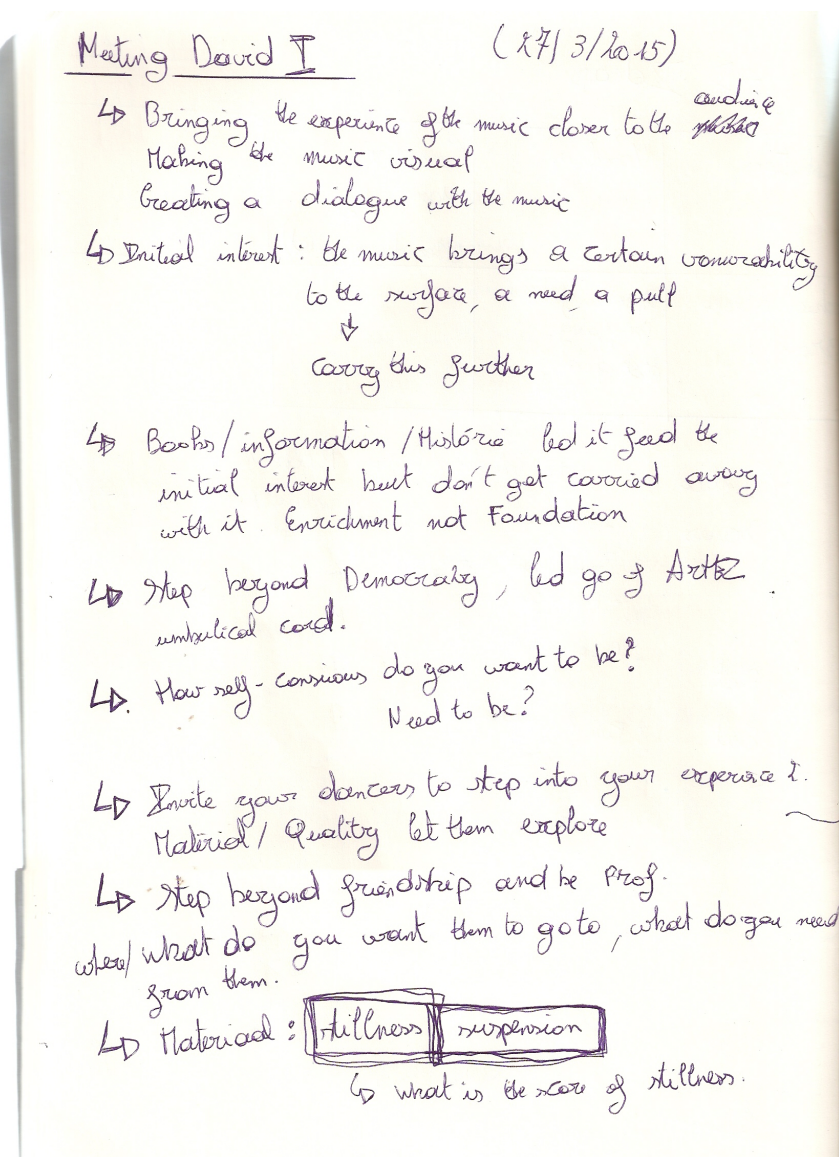 Meeting David I (27/3/2015)
↳ Bringing the experience of the music closer to the audience
Making the music visual
Creating a dialogue with the music
↳ Initial interest: the music brings a certain vonurability
to the surface, a need, a pull
↓
carry this further
↳ Books/information/Histórie led it feed the
initial interest but don't get carried away
with it. Enrichment not Foundation
↳ Step beyond Democraty, led go of ArtEZ
umbulical cord.
↳. How self-consious do you want to be?
Need to be?
↳ Invite your dancers to step into your experience
Material/Quality let them explore
↳ Step beyond friendship and be Prof.
where/what do you want them to go to, what do you need
from them.
↳ Material: stillness suspension
↳ what is the score of stillness.